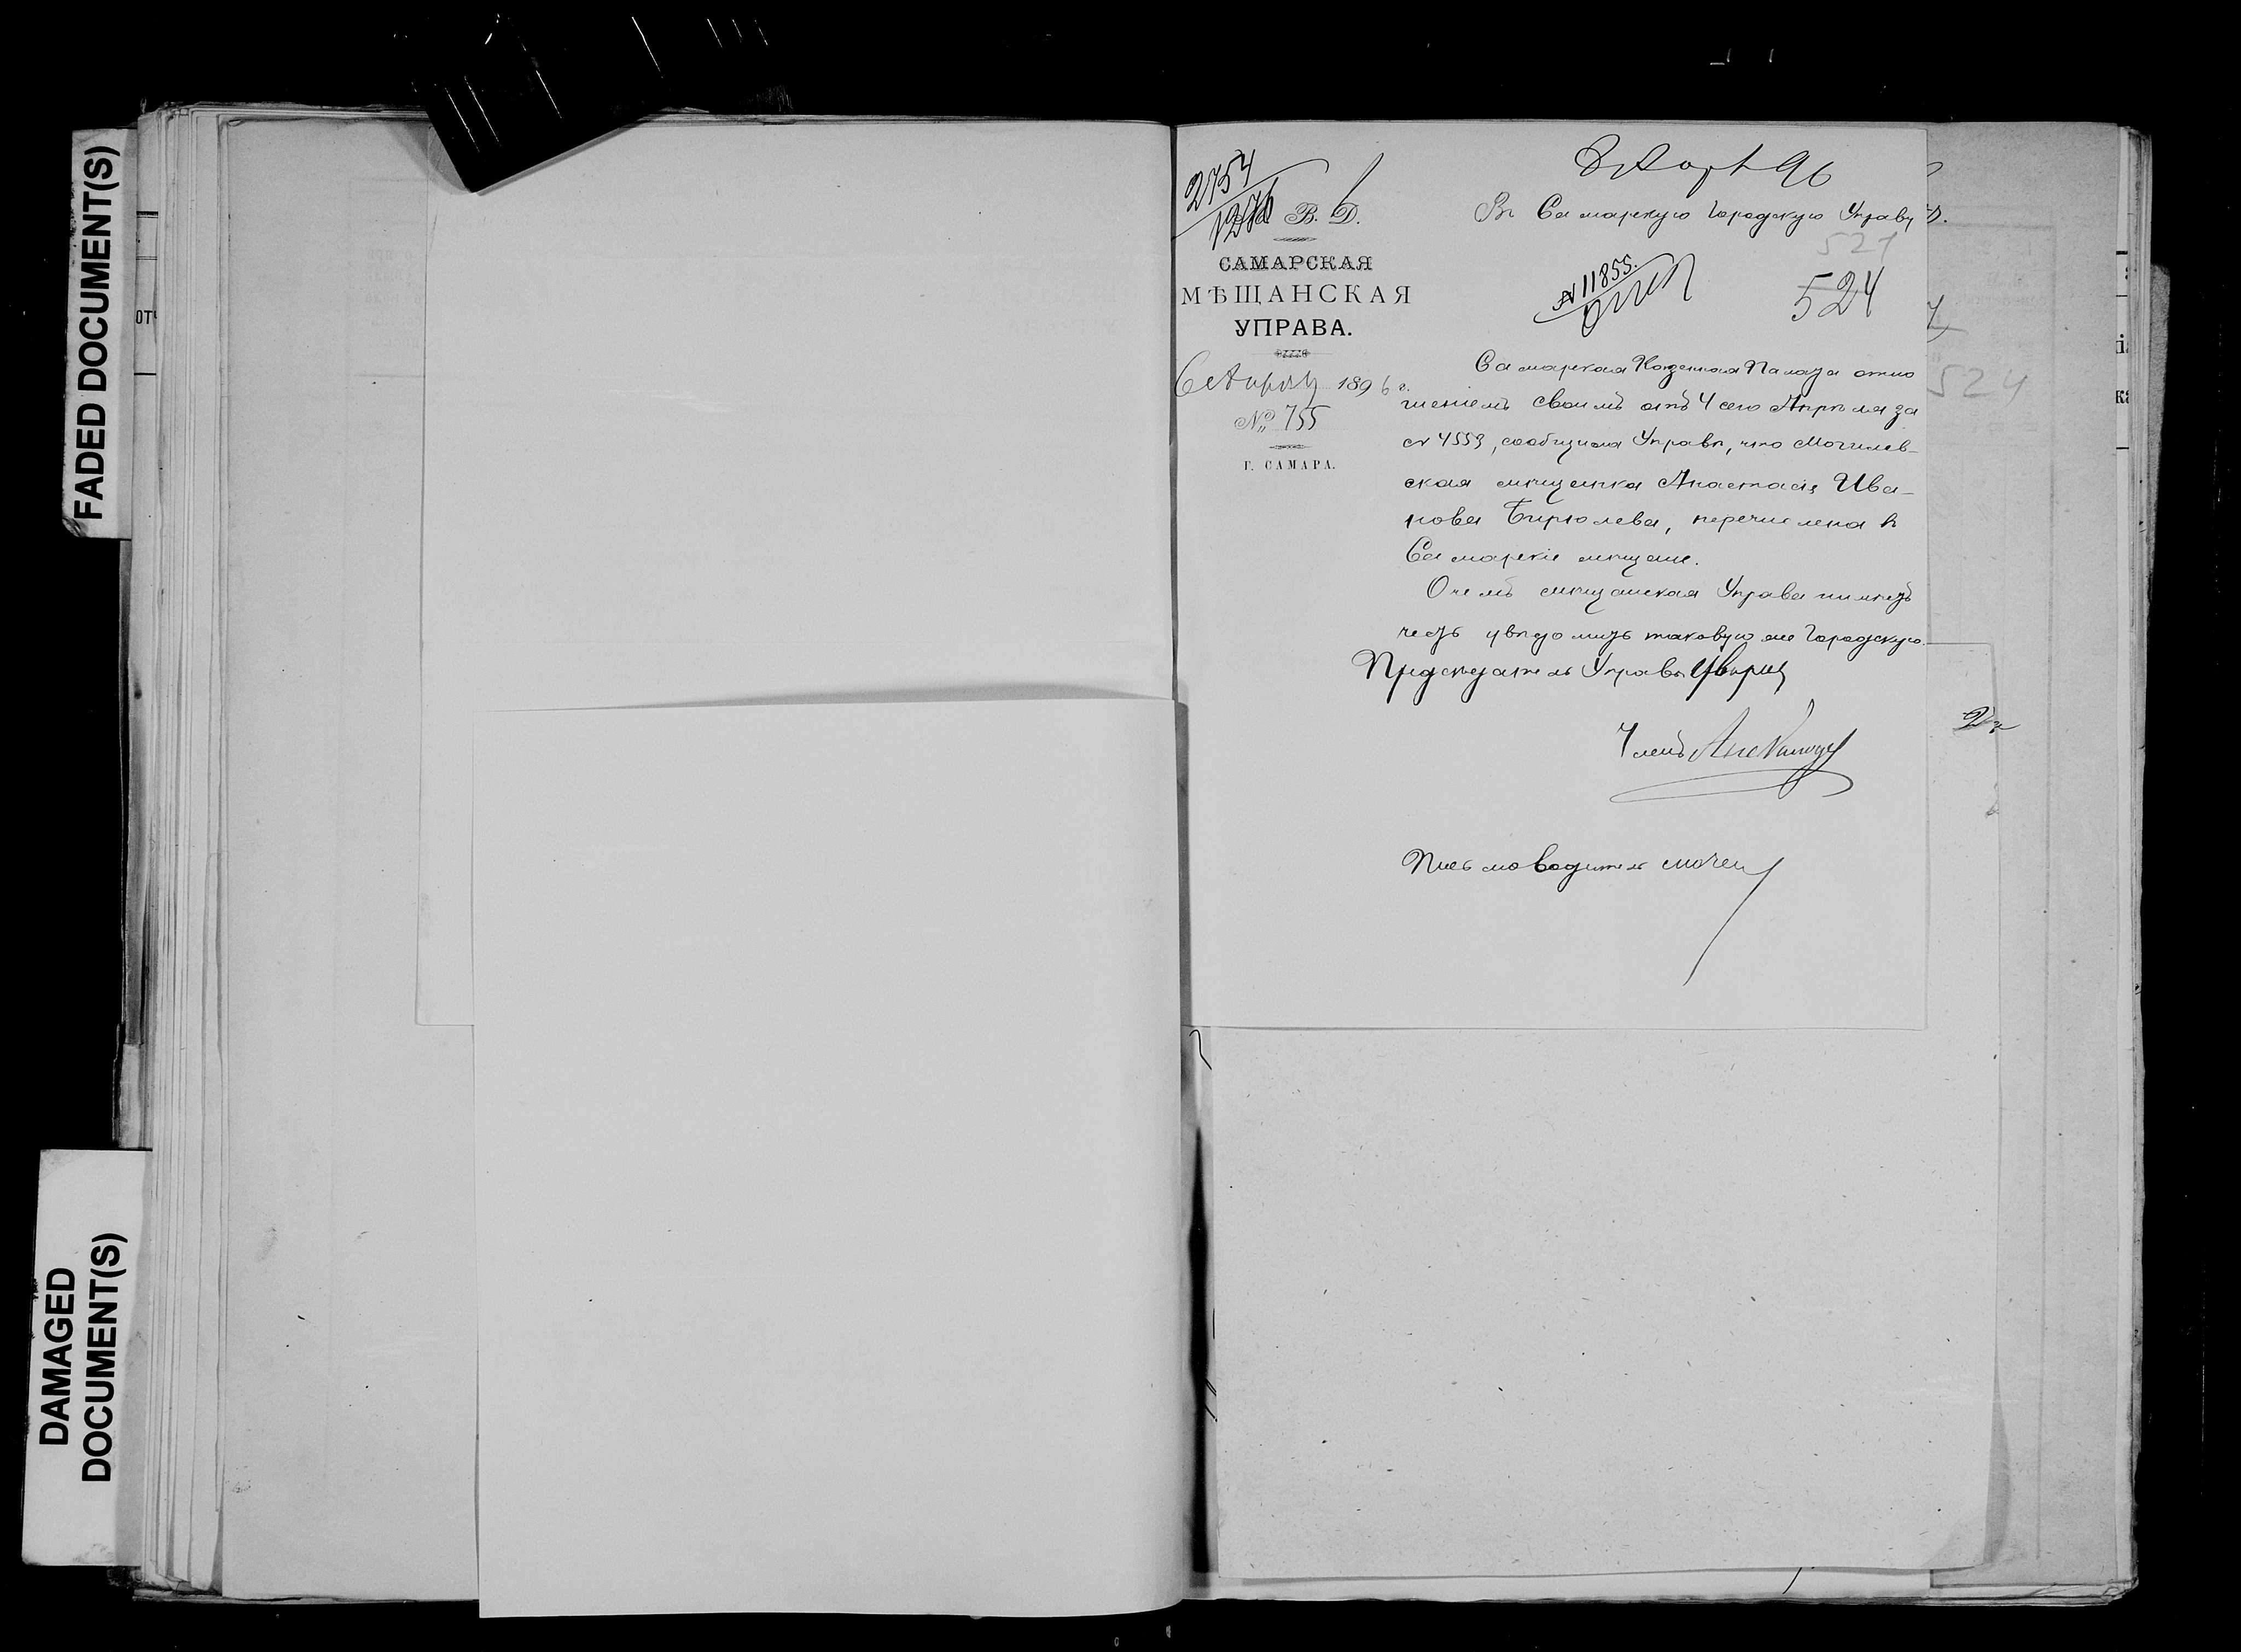 FADED DOCUMENT(S)
DAMAGED
DOCUMENT(S)
2754
В. Д.
САМАРСКАЯ
МѢЩАНСКАЯ
УПРАВА.
6 Апрѣля 1896 г.
№ 755
Г. САМАРА.
8 Апр 96
Въ Самарскую Городскую Управу
521
524
№ 11855.
Самарская Казенная Палата отно
шеніемъ своимъ отъ 4 сего Апрѣля за
№ 4559, сообщила Управѣ, что Могилев-
ская мѣщанка Анастасія Ива-
нова Бирюлева, перечислена въ
Самарскіе мѣщане.
О чемъ мѣщанская Управа имѣетъ
честь увѣдомить таковую же Городскую.
Предсѣдатель Управы
Членъ
Письмоводитель
524